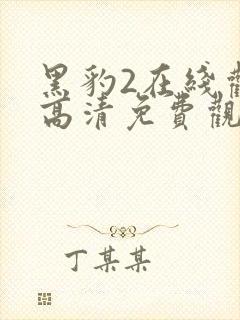 黑豹2在綫觀
高清免費觀
丁某某